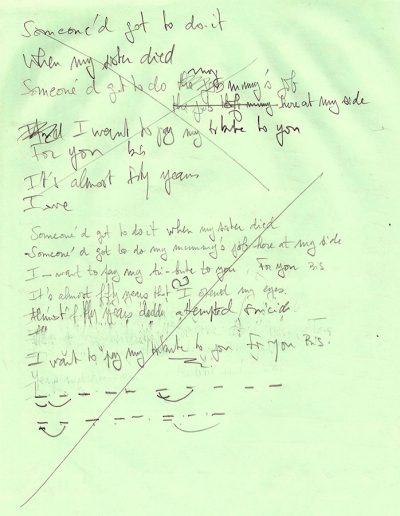 Someone'd got to do it
When my sister died
Someone'd got to do the my mummy's job
the job left mummy here at my side
I want to pay my tribute to you
For you bis
It's almost fifty years
I
Someone'd got to do it when my sister died
Someone'd got to do my mummy's job here at my side
I want to pay my tri-bute to you. For you Bis
It's almost fifty years that I opened my eyes.
Almost fifty years daddy attempted suicide
I want to pay my tribute to you for you Bis.